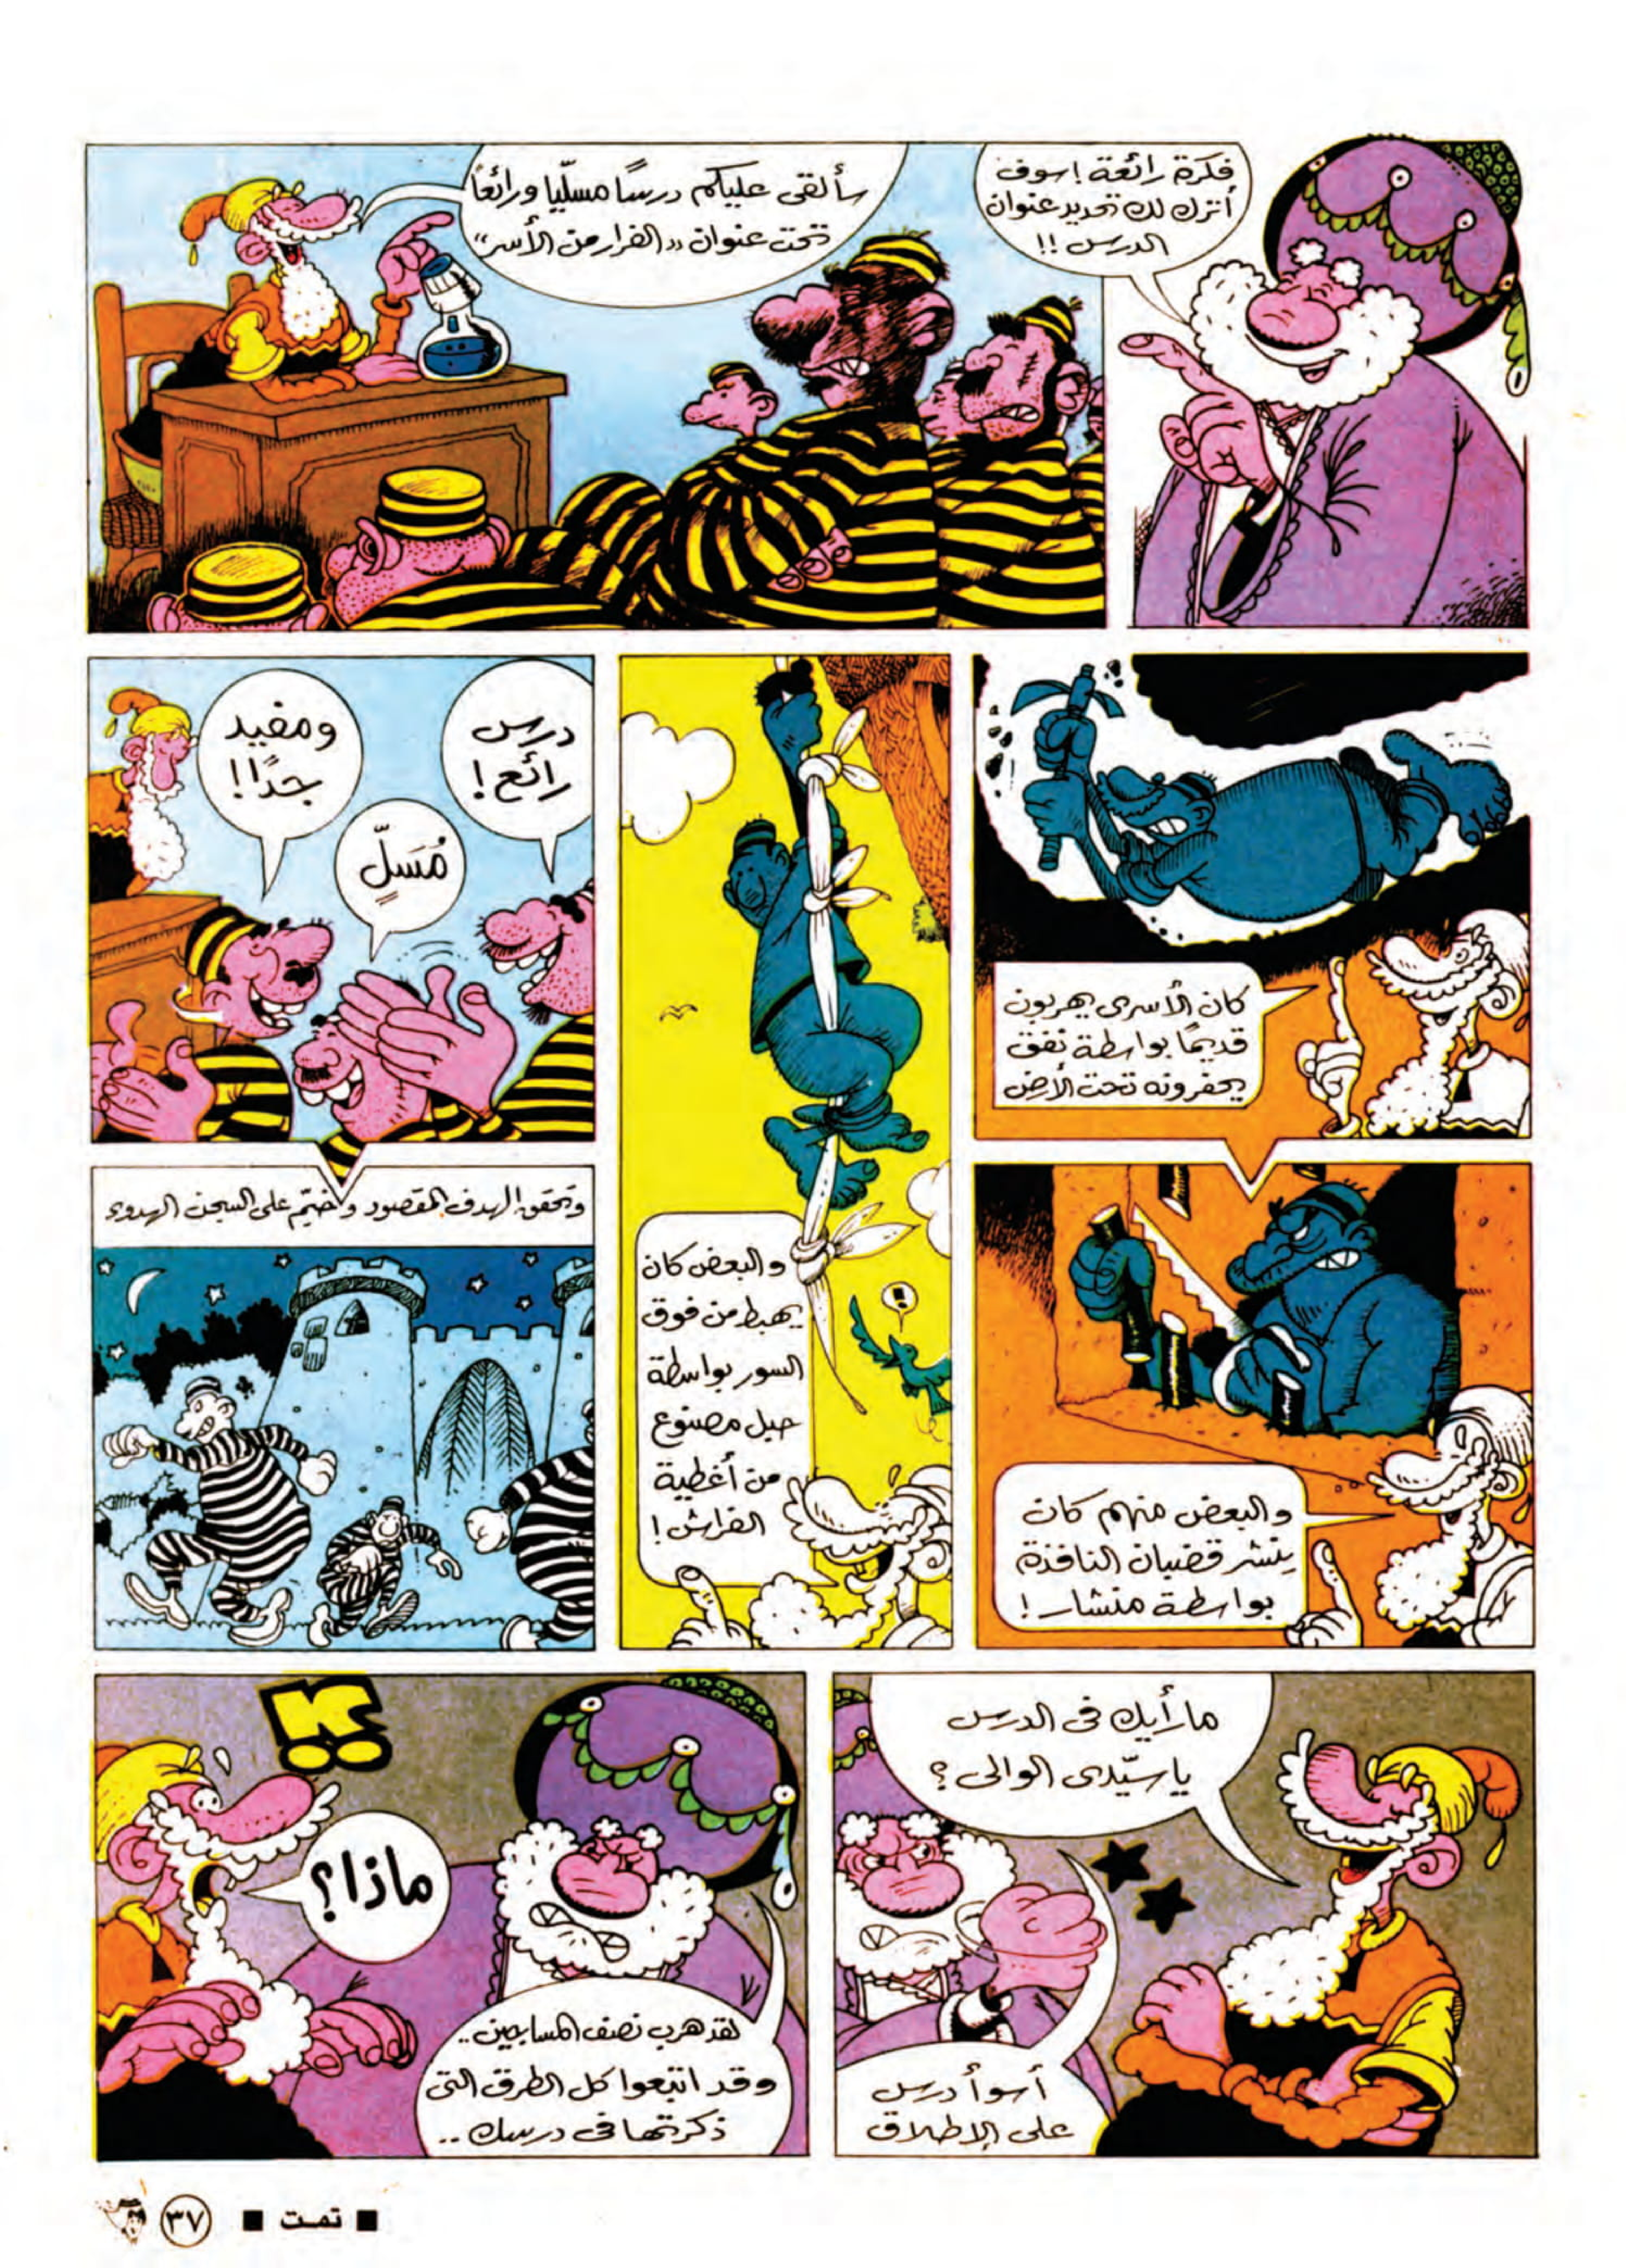 فكرة رائعة! سوف
أترك لك تحديد عنوان
الدرس !!
سألقى عليكم درسًا مسلّيا ورائعاً
تحت عنوان «الفرار من الأسر»
كان الأسرى يهربون
قديمًا بواسطة نفق
يحفرونه تحت الأرض
والبعض منهم كان
ينشر قضبان النافذة
بواسطة منشار!
والبعض كان
يهبط من فوق
السور بواسطة
حبل مصنوع
من أغطية
الفراش!
!
درس
رائع!
مُسَلٍّ
ومفيد
جدًا!
وتحقق الهدف المقصود وخيّم على السجن الهدوء
ما رأيك فى الدرس
يا سيّدى الوالى ؟
أسوأ درس
على الإطلاق
لقد هرب نصف المساجين..
وقد اتبعوا كل الطرق التى
ذكرتها فى درسك ..
ماذا؟
!!
■ تمت ■
٣٧